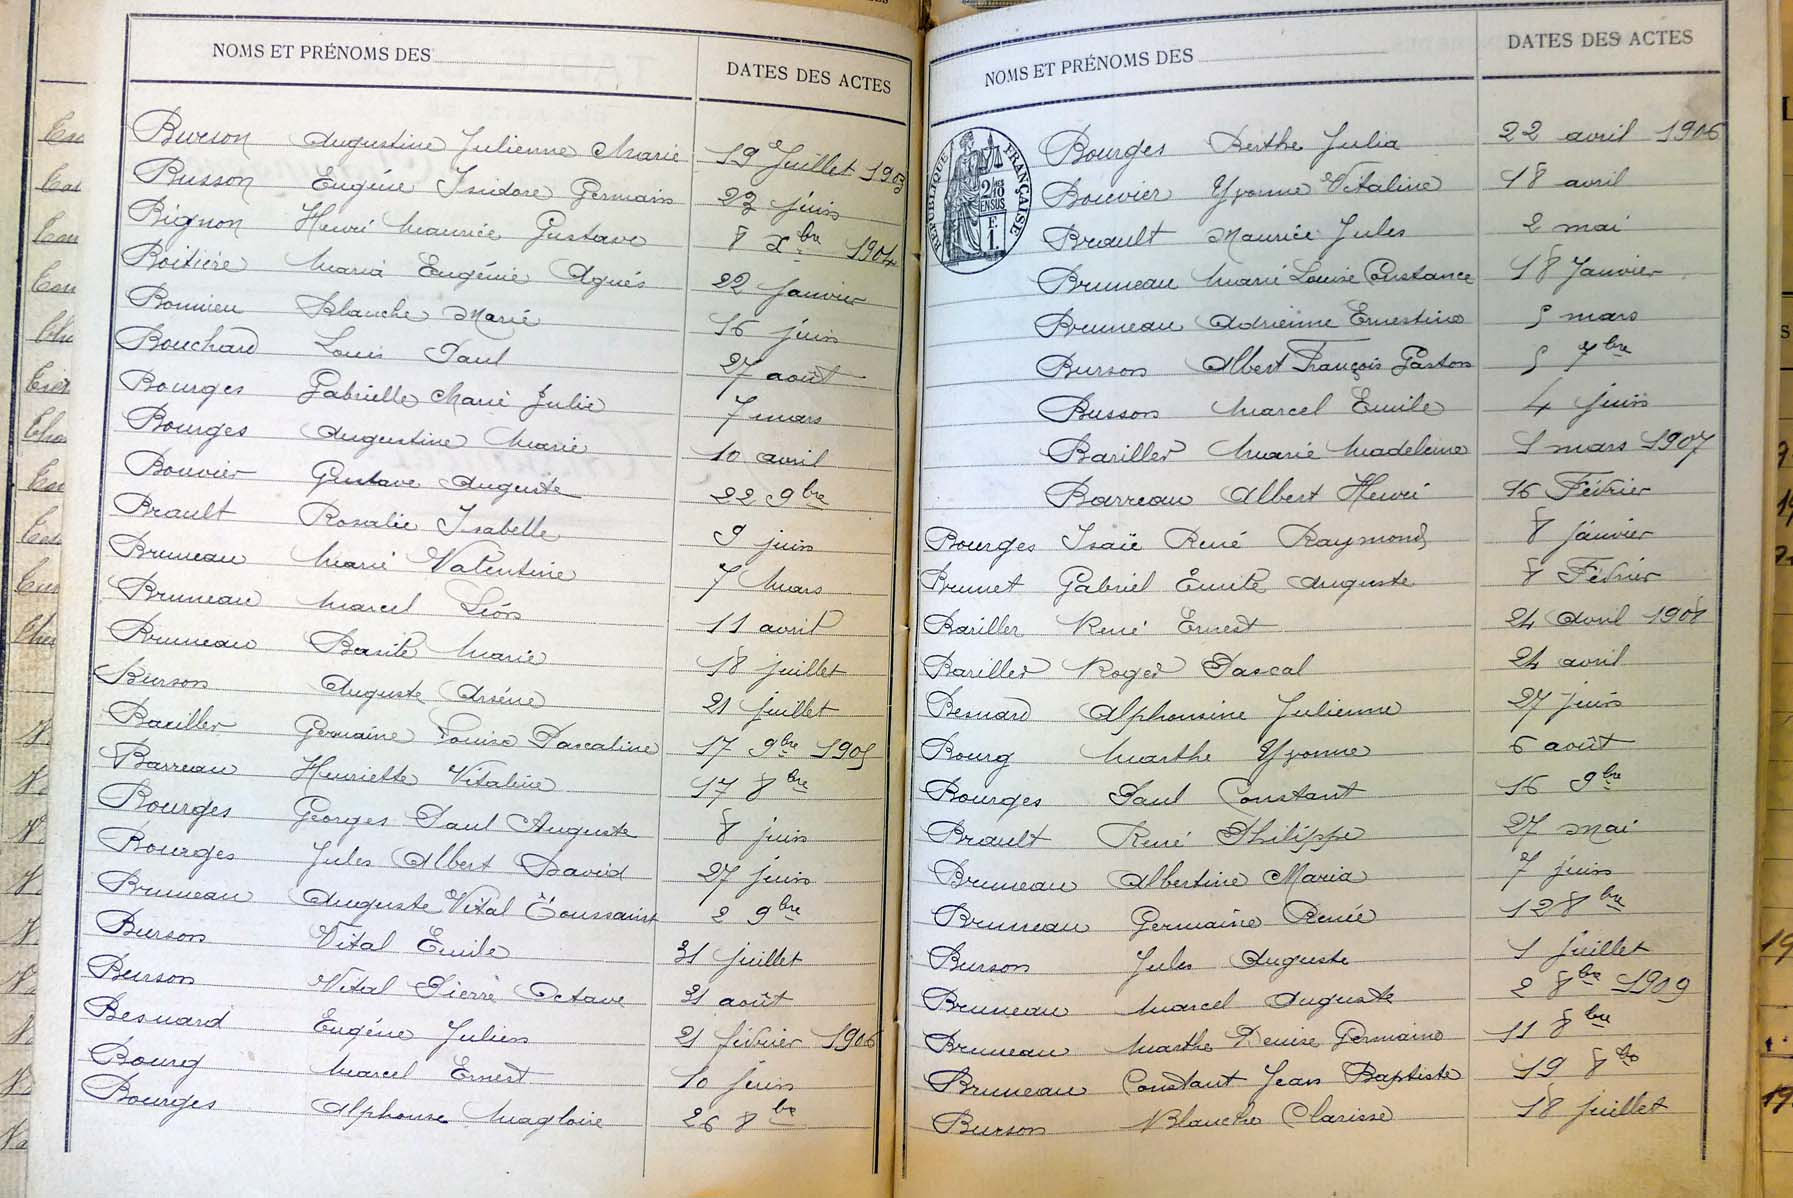 NOMS ET PRÉNOMS DES DATES DES ACTES
Burson Augustine Julienne Marie 19 Juillet 1903
Busson Eugène Isidore Germain 23 juin
Bignon Henri Maurice Gustave 8 Xbre 1904
Boitière Maria Eugénie Agnès 22 janvier
Bonnieu Blanche Marie 16 juin
Bouchard Louis Paul 27 août
Bourges Gabrielle Marie Julie 7 mars
Bourges Augustine Marie 10 avril
Bouvier Gustave Auguste 22 9bre
Brault Rosalie Isabelle 9 juin
Bruneau Marie Valentine 7 Mars
Bruneau Marcel Léon 11 avril
Bruneau Basile Marie 18 juillet
Burson Auguste Arsène 21 juillet
Bariller Germaine Louise Pascaline 17 9bre 1905
Barreau Henriette Vitaline 17 8bre
Bourges Georges Paul Auguste 8 juin
Bourges Jules Albert David 27 juin
Bruneau Auguste Vital Toussaint 2 9bre
Burson Vital Emile 31 juillet
Burson Vital Pierre Octave 31 août
Besnard Eugène Julien 21 février 1906
Bourg Marcel Ernest 10 juin
Bourges Alphonse Magloire 26 8bre
NOMS ET PRÉNOMS DES DATES DES ACTES
RÉPUBLIQUE FRANÇAISE
2/10 EN SUS
F. 1.
Bourges Berthe Julia 22 avril 1906
Bouvier Yvonne Vitaline 18 avril
Brault Maurice Jules 2 mai
Bruneau Marie Louise Constance 18 Janvier
Bruneau Adrienne Ernestine 5 mars
Burson Albert François Gaston 5 7bre
Busson Marcel Emile 4 juin
Bariller Marie Madeleine 1 mars 1907
Barreau Albert Henri 16 Février
Bourges Isaïe René Raymond 8 janvier
Brunet Gabriel Emile Auguste 8 Février
Bariller René Ernest 24 Avril 1908
Bariller Roger Pascal 24 avril
Besnard Alphonsine Julienne 27 juin
Bourg Marthe Yvonne 6 août
Bourges Paul Constant 16 9bre
Brault René Philippe 27 mai
Bruneau Albertine Maria 7 juin
Bruneau Germaine Renée 12 8bre
Burson Jules Auguste 1 juillet
Bruneau Marcel Auguste 2 8bre 1909
Bruneau Marthe Denise Germaine 11 8bre
Bruneau Constant Jean Baptiste 19 8bre
Burson Blanche Clarisse 18 juillet